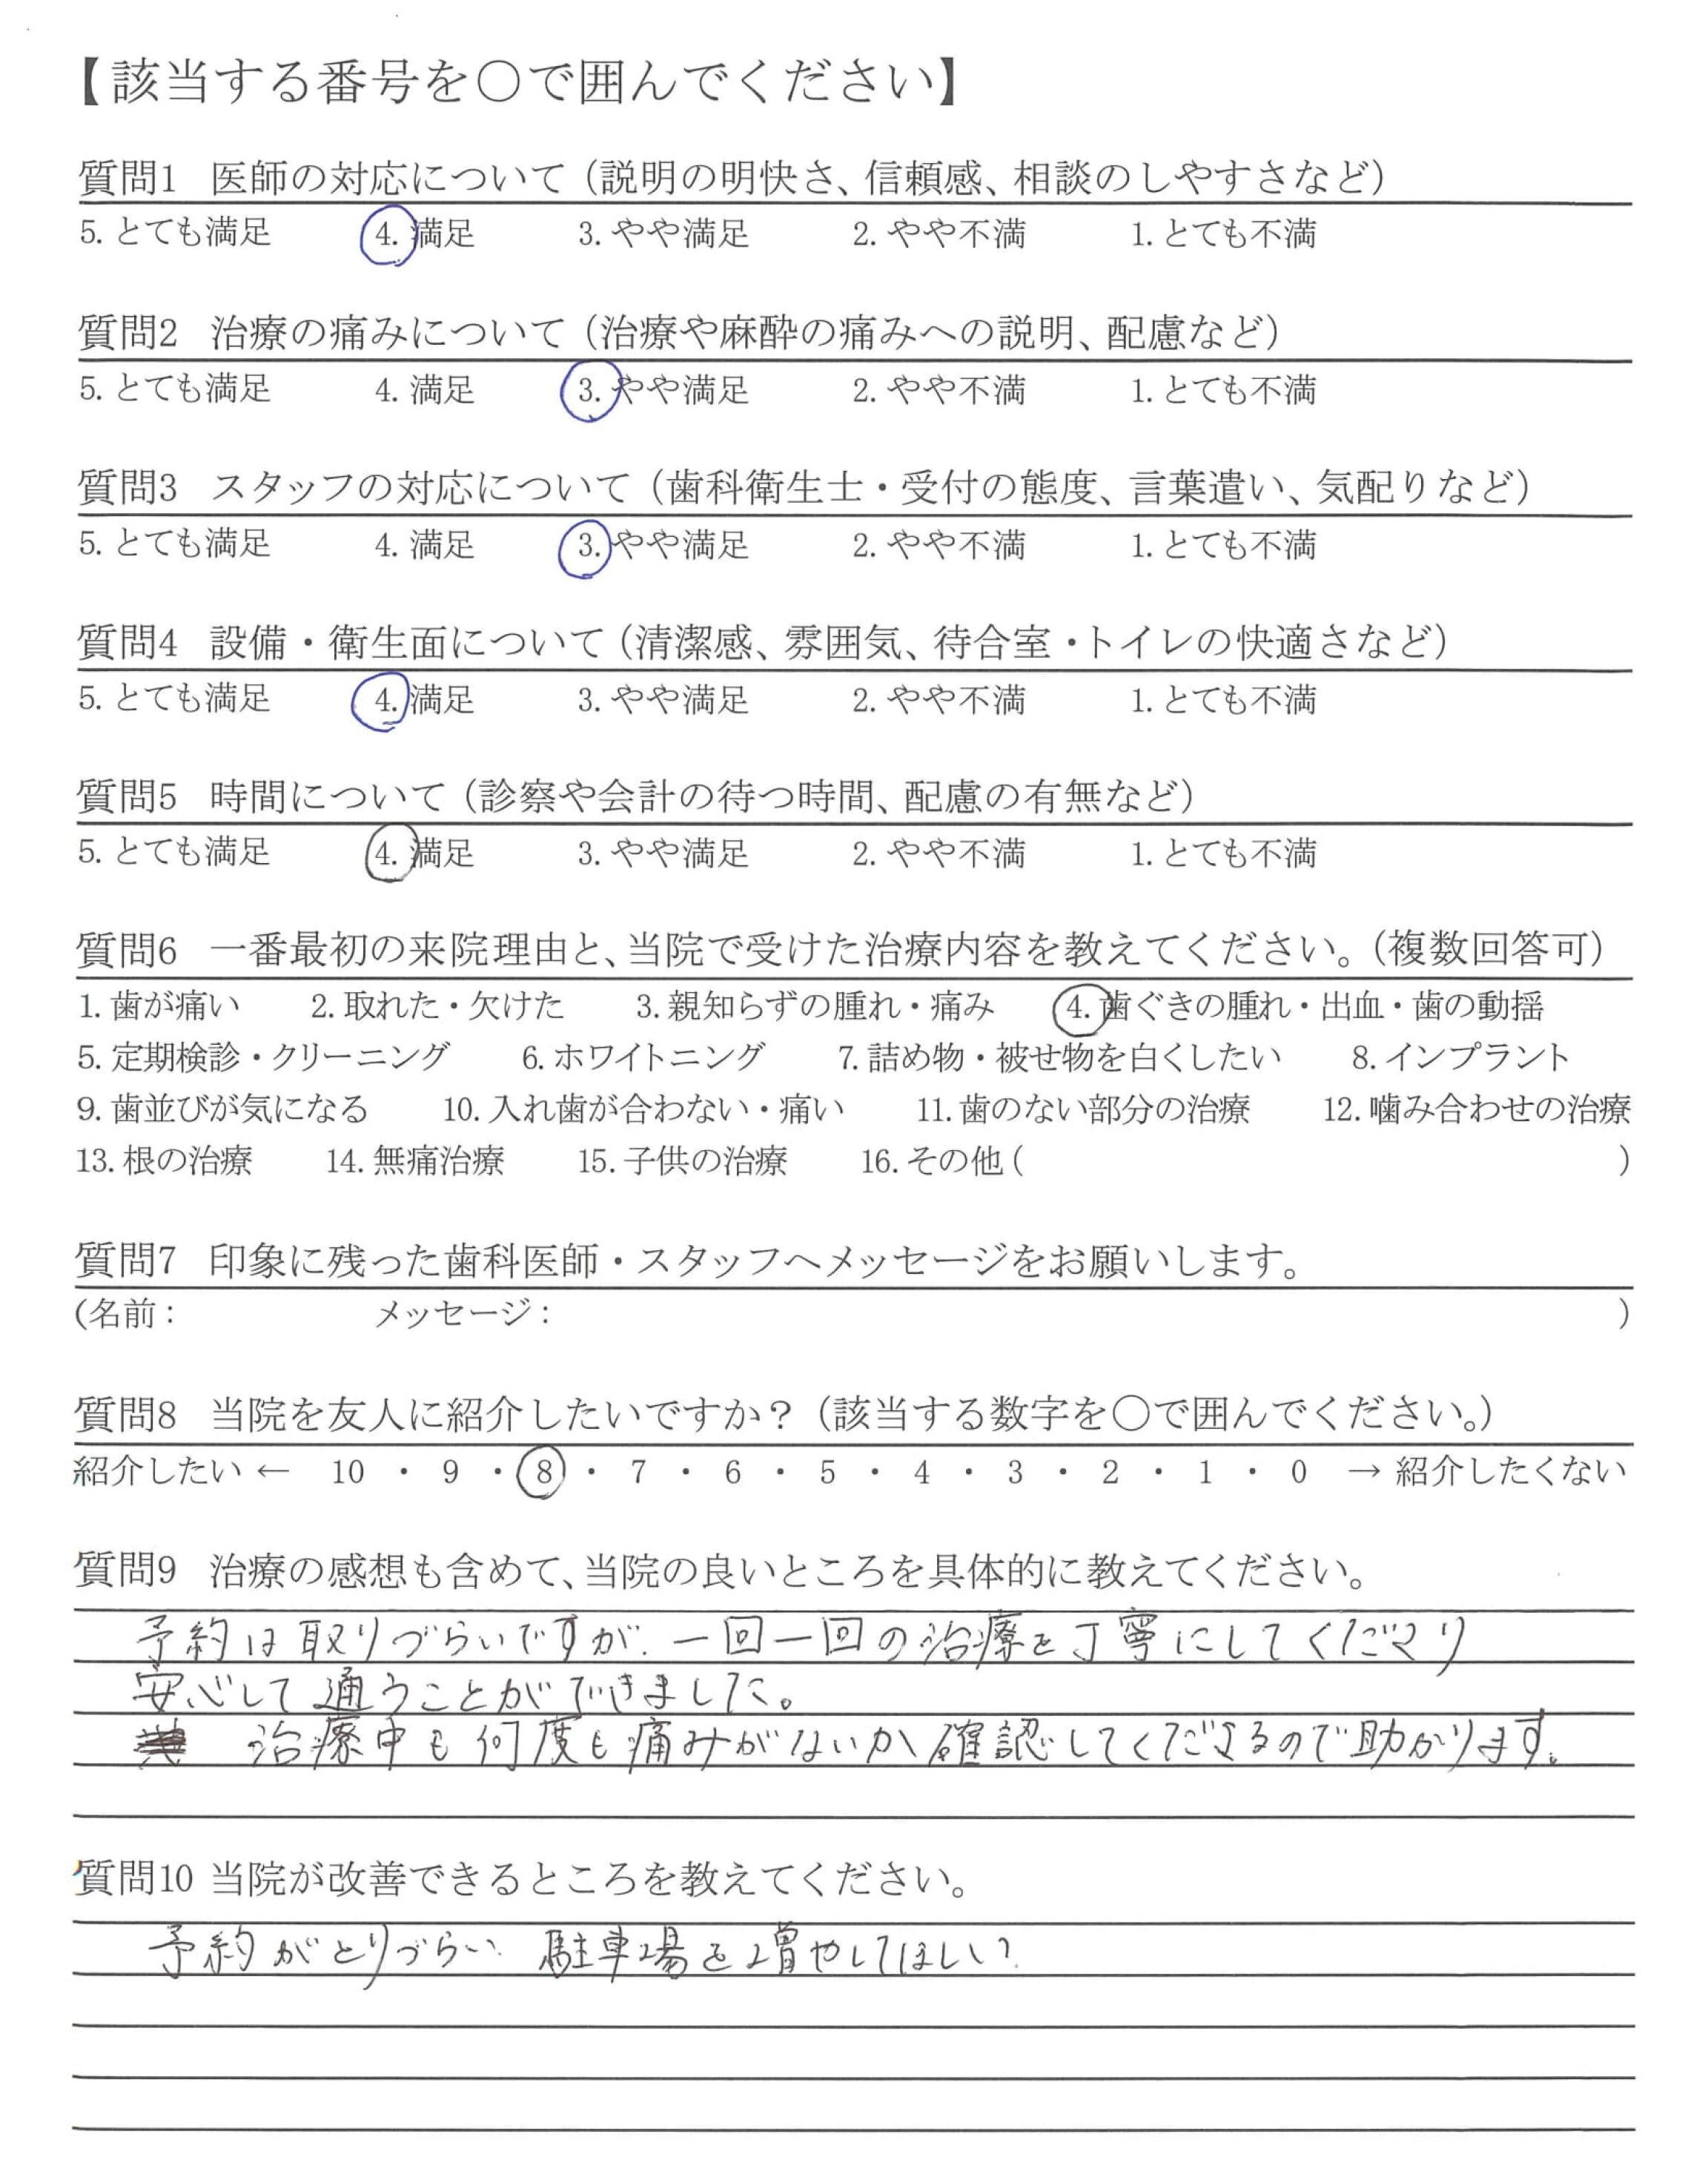 【該当する番号を○で囲んでください】
質問1 医師の対応について（説明の明快さ、信頼感、相談のしやすさなど）
5. とても満足 4. 満足 3. やや満足 2. やや不満 1. とても不満
質問2 治療の痛みについて（治療や麻酔の痛みへの説明、配慮など）
5. とても満足 4. 満足 3. やや満足 2. やや不満 1. とても不満
質問3 スタッフの対応について（歯科衛生士・受付の態度、言葉遣い、気配りなど）
5. とても満足 4. 満足 3. やや満足 2. やや不満 1. とても不満
質問4 設備・衛生面について（清潔感、雰囲気、待合室・トイレの快適さなど）
5. とても満足 4. 満足 3. やや満足 2. やや不満 1. とても不満
質問5 時間について（診察や会計の待つ時間、配慮の有無など）
5. とても満足 4. 満足 3. やや満足 2. やや不満 1. とても不満
質問6 一番最初の来院理由と、当院で受けた治療内容を教えてください。（複数回答可）
1. 歯が痛い 2. 取れた・欠けた 3. 親知らずの腫れ・痛み 4. 歯ぐきの腫れ・出血・歯の動揺
5. 定期検診・クリーニング 6. ホワイトニング 7. 詰め物・被せ物を白くしたい 8. インプラント
9. 歯並びが気になる 10. 入れ歯が合わない・痛い 11. 歯のない部分の治療 12. 噛み合わせの治療
13. 根の治療 14. 無痛治療 15. 子供の治療 16. その他（ ）
質問7 印象に残った歯科医師・スタッフへメッセージをお願いします。
（名前： メッセージ： ）
質問8 当院を友人に紹介したいですか？（該当する数字を○で囲んでください。）
紹介したい ← 10 ・ 9 ・ 8 ・ 7 ・ 6 ・ 5 ・ 4 ・ 3 ・ 2 ・ 1 ・ 0 → 紹介したくない
質問9 治療の感想も含めて、当院の良いところを具体的に教えてください。
予約は取りづらいですが、一回一回の治療を丁寧にしてくださり
安心して通うことができました。
治療中も何度も痛みがないか確認してくださるので助かります。
質問10 当院が改善できるところを教えてください。
予約がとりづらい 駐車場を増やしてほしい